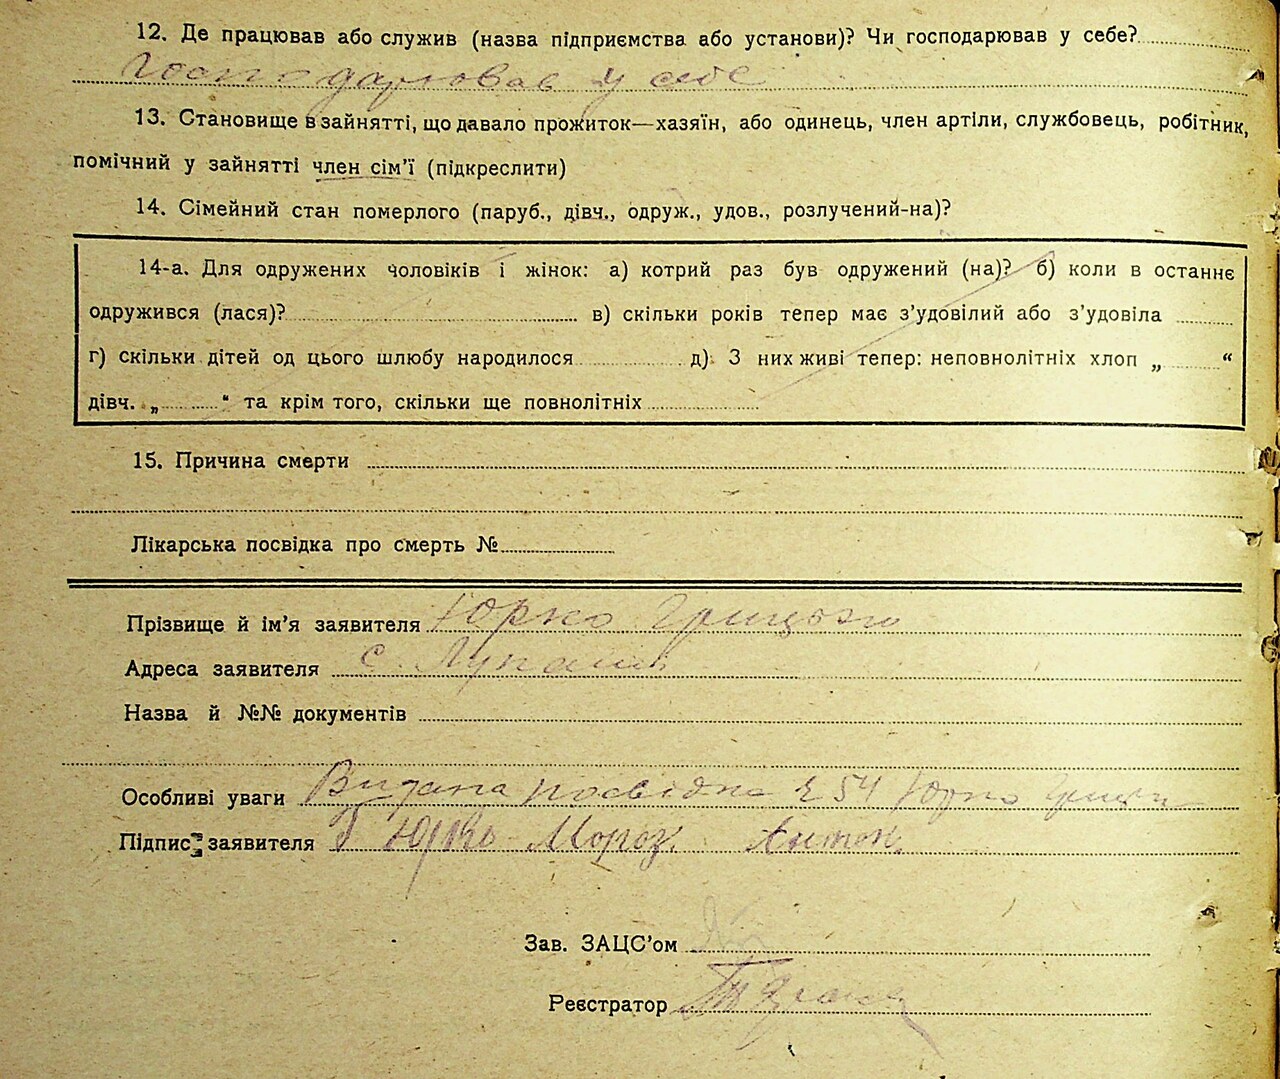 12. Де працював або служив (назва підприємства або установи)? Чи господарював у себе?
Господарював у себе
13. Становище в зайнятті, що давало прожиток—хазяїн, або одинець, член артіли, службовець, робітник,
помічний у зайнятті член сім'ї (підкреслити)
14. Сімейний стан померлого (паруб., дівч., одруж., удов., розлучений-на)?
14-а. Для одружених чоловіків і жінок: а) котрий раз був одружений (на)? б) коли в останнє
одружився (лася)? в) скільки років тепер має з'удовілий або з'удовіла
г) скільки дітей од цього шлюбу народилося д) З них живі тепер: неповнолітніх хлоп „ “
дівч. „ “ та крім того, скільки ще повнолітніх
15. Причина смерти
Лікарська посвідка про смерть №
Прізвище й ім'я заявителя Юрко Грицько
Адреса заявителя с. Лупаші
Назва й №№ документів
Особливі уваги Видана посвідка 54 Юрко
Підпис заявителя Юрко Мороз Антон
Зав. ЗАЦС'ом
Реєстратор